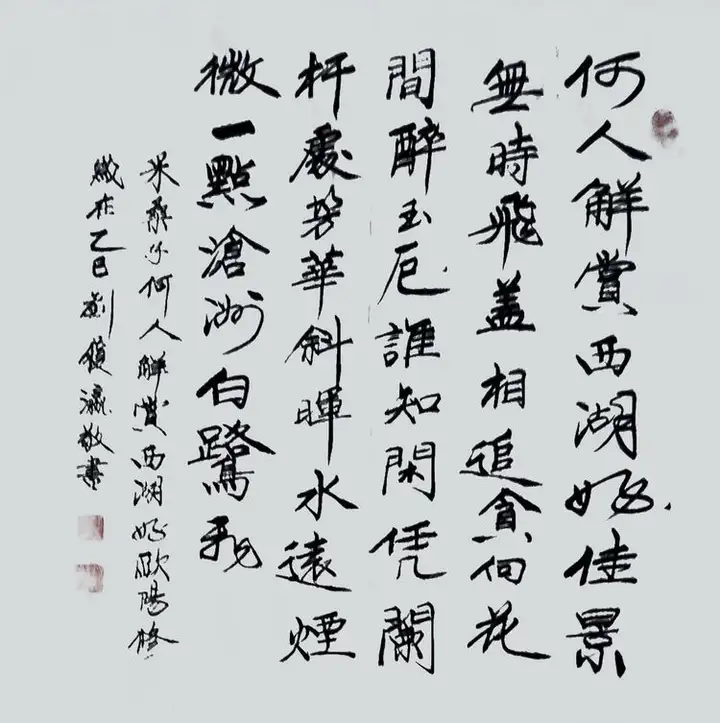 何人解賞西湖好佳景
無時飛蓋相追貪向花
間醉玉卮誰知閑凭闌
杆處芳華斜暉水遠煙
微一點滄洲白鷺飛
采桑子何人解賞西湖好歐陽修
歲在乙巳劉瀛敬書